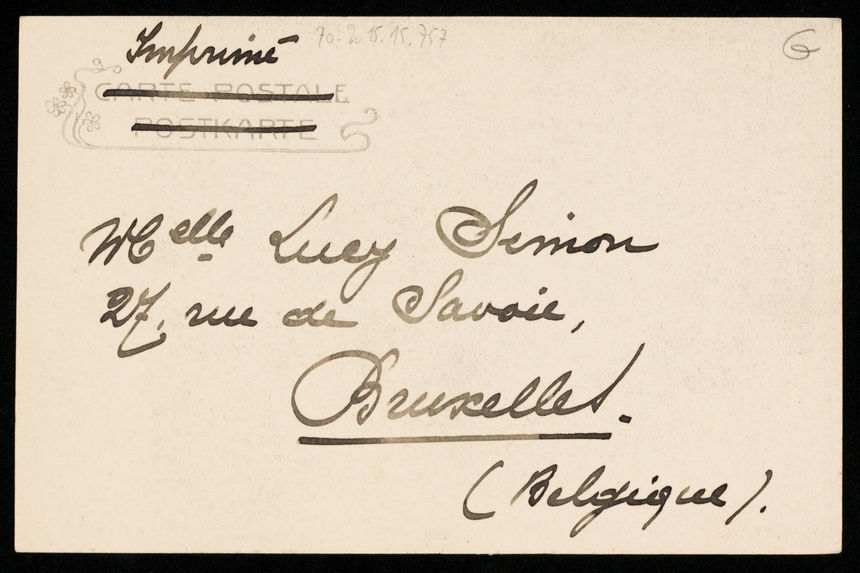 Imprimé 70.2.15.15.757 G
CARTE POSTALE
POSTKARTE
Melle Lucy Simon
27, rue de Savoie,
Bruxelles.
(Belgique).